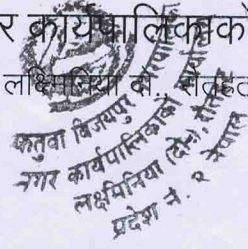 र कार्यपालिकाको
लक्ष्मिनिया दो.,
कतुवा विजयपुर
नगर कार्यपालिकाको
लक्ष्मिनिया (दोन),
प्रदेश नं. २ नेपाल